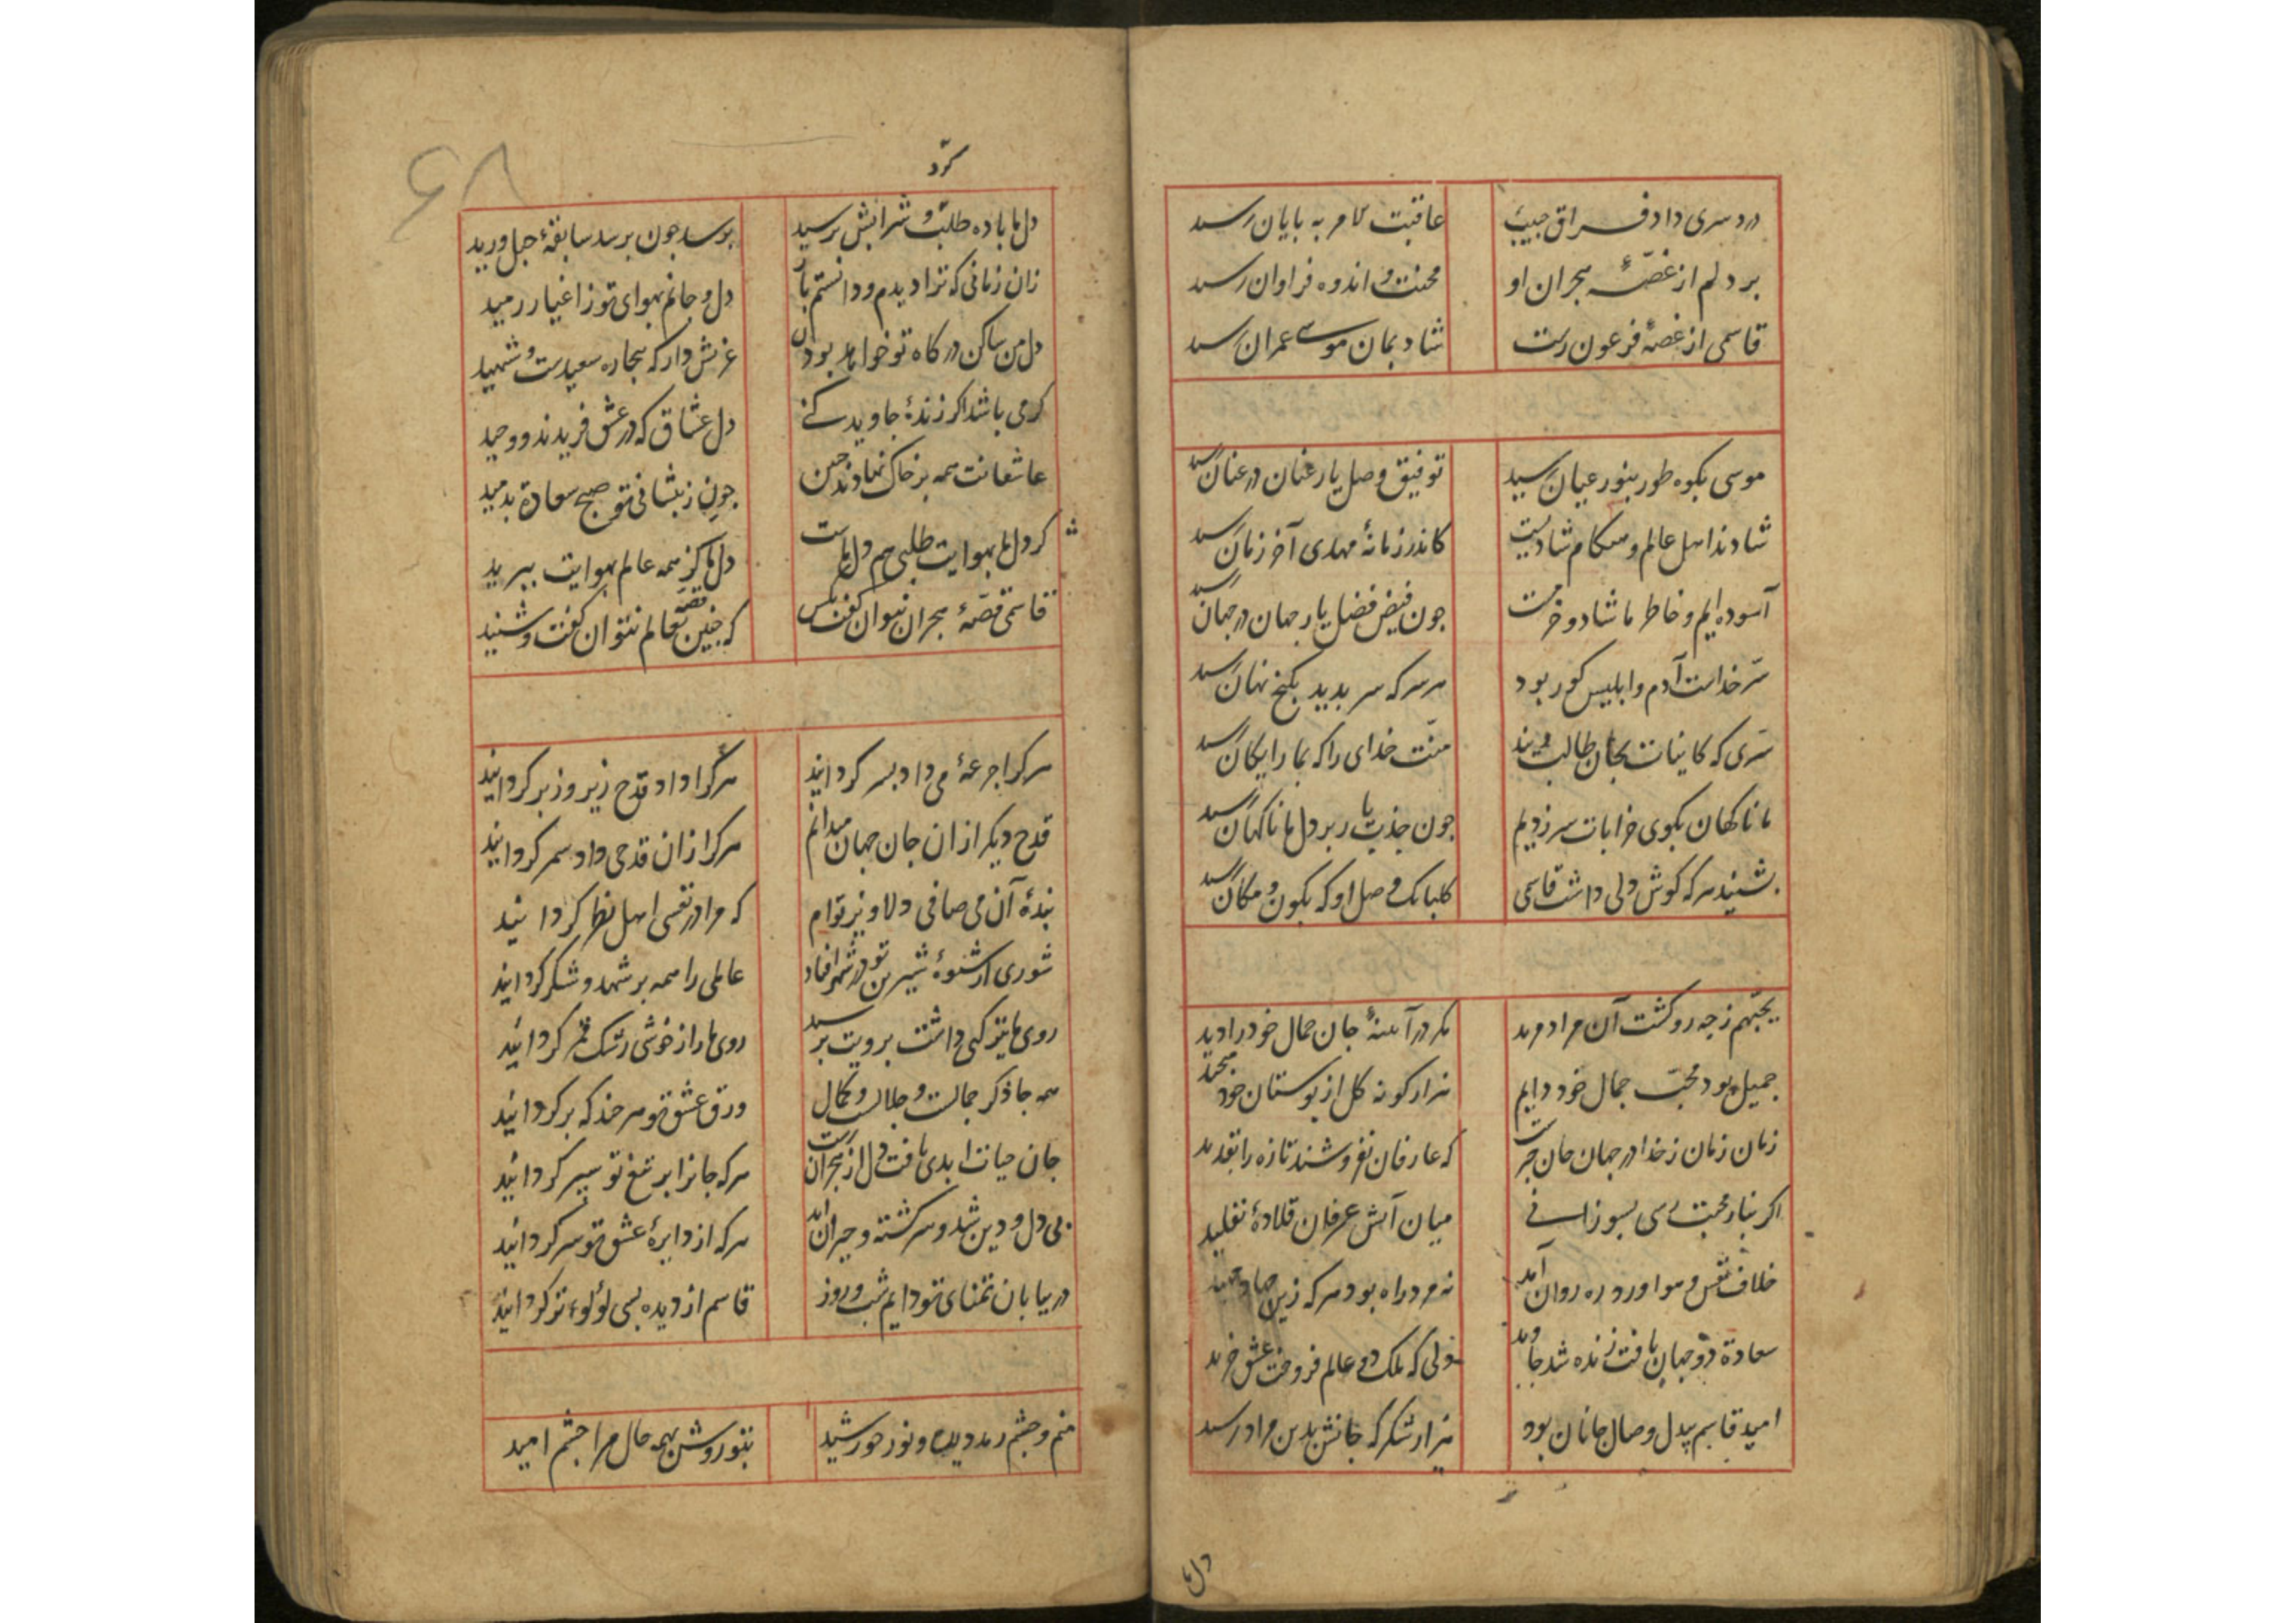 دردسری داد فراق حبیب عاقبت کامر به بایان رسید
بر دلم از غصّهٔ هجران او محنت و اندوه فراوان رسید
قاسمی از غصهٔ فرعون رست شادیمان موسی عمران رسید
موسی بکوه طور بنور عیان رسید توفیق وصل یار عنان در عنان رسید
شادند اهل عالم و هنکام شادیست کاندر زمانهٔ مهدی آخر زمان رسید
آسوده ایم و خاطر ما شاد و خرمست جون فیض فضل یار جهان در جهان رسید
سرّ خداست آدم و ابلیس کور بود هر سر که سر بدید بکنج نهان رسید
سرّی که کاینات بجان طالب ویند منّت خدای را که بما رایکان رسید
ما ناکهان بکوی خرابات سر زدیم جون جذب یار بر دل ما ناکهان رسید
بشنید هر که کوش دلی داشت قاسمی کلبانک وصل او که بکون و مکان رسید
یحبّهم ز جه رو کشت آن مراد مرید مکر در آینهٔ جان جمال خود را دید
جمیل بود محبّ جمال خود دایم هزار کونه کل از بوستان خود
زمان زمان ز خدا در جهان جان که عارفان نفروشند تازه را بقدید
اکر بنار محبت رسی بسوزانی میان آتش عرفان قلادهٔ تقلید
خلاف نفس و هوا ورد ره روان آمد نه مرد راه بود هر که زین جهاد
سعادة دو جهان یافت زنده شد جاوید ولی که ملک دو عالم فروخت عشق خرید
امید قاسم بیدل وصال جانان بود هزار شکر که جانش بدین مراد رسید
دل ما
۶۸
کرد
دل ما باده طلب و شرابش برسید بوسد جون برسد سابقهٔ حبل ورید
زان زمانی که ترا دیدم و دانستم باز دل و جانم بهوای تو ز اغیار رمید
دل من ساکن درکاه تو خواهد بودن عزتش دار که بیجاره سعیدست و شهید
کرمی باشد اکر زندهٔ جاوید کنی دل عشاق که در عشق فریدند و وحید
عاشقانت همه بر خاک نهادند جبین جون ز بیشانی تو صبح سعادة بدمید
کر دل ما بهوایت طلبی هم دل ماست دل ما کز همه عالم بهوایت ببرید
قاسمی قصّهٔ هجران نتوان کفت بکس که جنین قصّه بعالم نتوان کفت و شنید
هر کرا جرعهٔ می داد بسر کردانید هر کرا داد قدح زیر و زبر کردانید
قدح دیکر از ان جان جهان میدانم هر کرا زان قدحی داد سمر کردانید
بندهٔ آن می صافی دلاویز توام که مرا در نفسی اهل نظر کردانید
شوری از شیوهٔ شیرین تو در شهر افتاد عالمی را همه بر شهد و شکر کردانید
روی ما تیرکیی داشت برویت برسید روی ما را ز خوشی رشک قمر کردانید
همه جا ذکر جمالست و جلالست و کمال ورق عشق تو هر جند که بر کردانید
جان حیات ابدی یافت دل از هجران رست هر که جانرا بر تیغ تو سپر کردانید
بی دل و دین شد و سرکشته و حیران آمد هر که از دایرهٔ عشق تو سر کردانید
در بیابان تمنای تو دایم شب و روز قاسم از دیده بسی لؤلوء تر کردانید
منم و جشم رمد دیده و نور خورشید بتو روشن بهمه حال مرا جشم امید